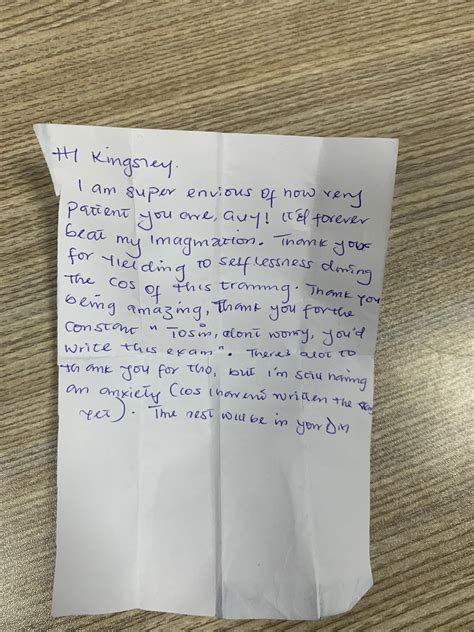 HI Kingsley.
I am super envious of how very
patient you are, guy! It'd forever
beat my imagination. Thank you
for yielding to selflessness during
the cos of this training. Thank you
being amazing, Thank you for the
constant " Tosin, dont worry, you'd
write this exam". There's alot to
thank you for tho, but I'm still having
an anxiety (cos I havent written the
yet). The rest will be in your Dm